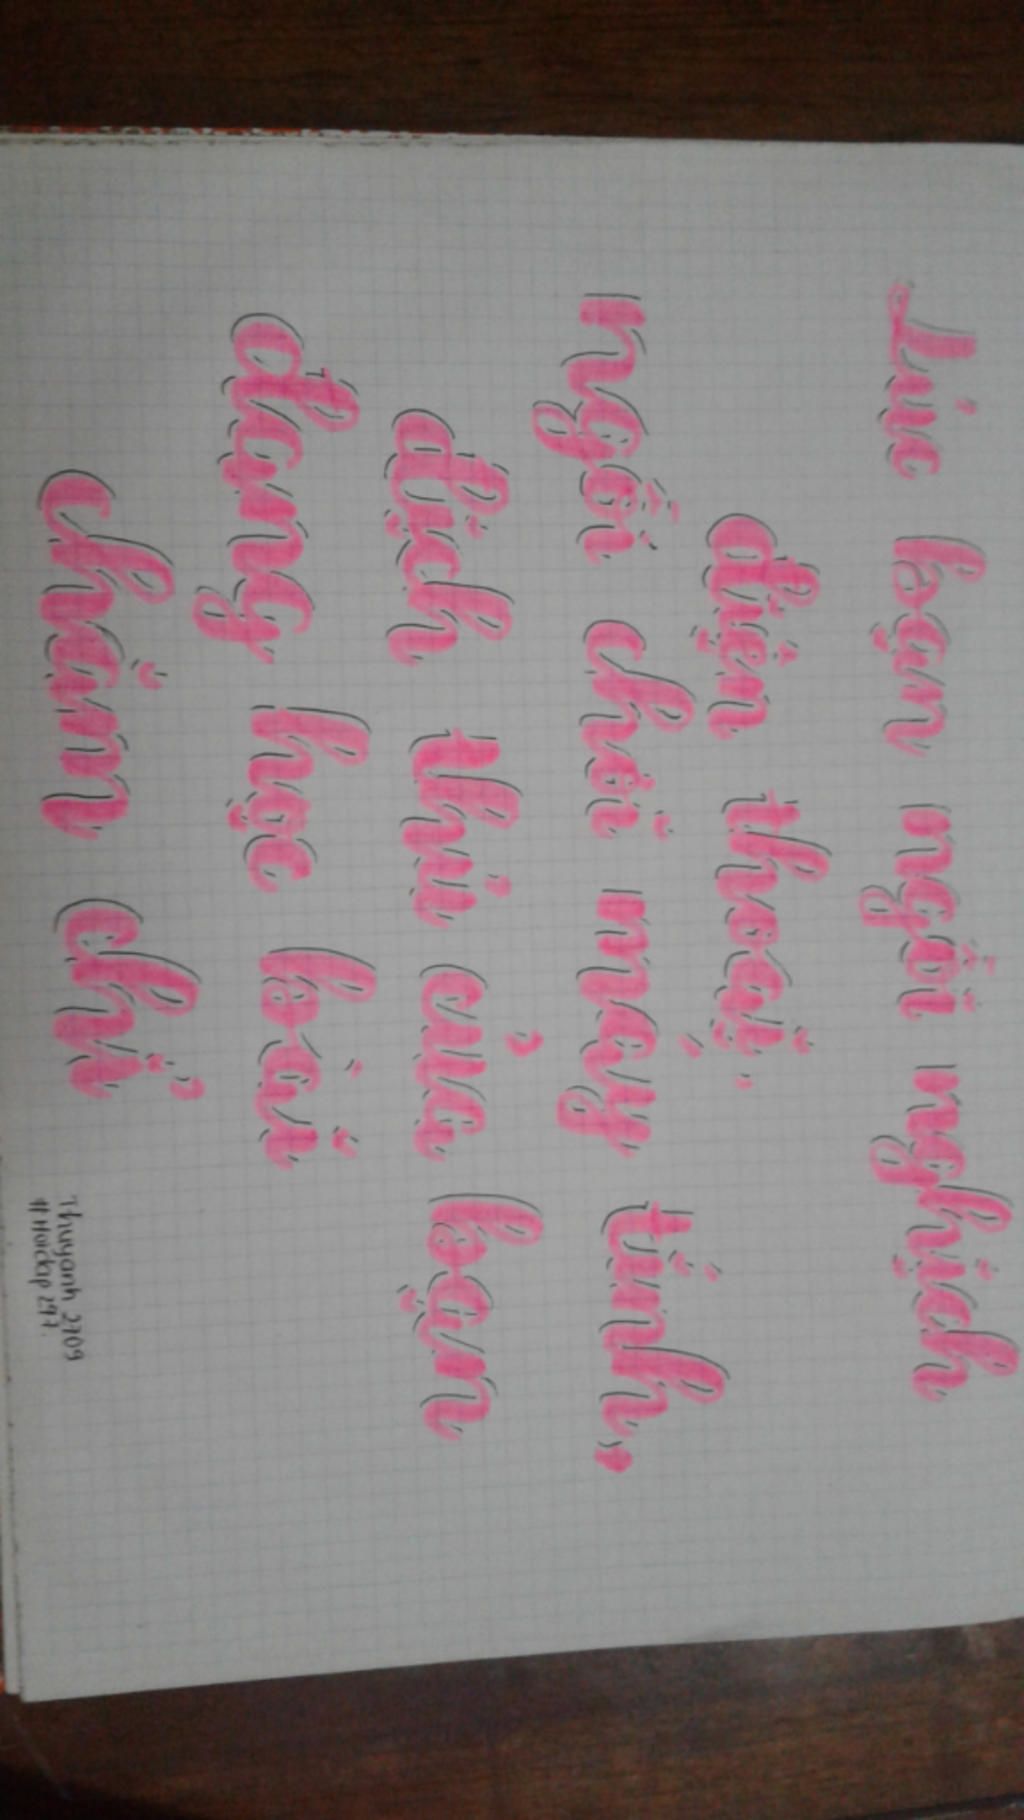 Lúc bạn ngồi nghịch
điện thoại,
ngồi chơi máy tính,
địch thủ của bạn
đang học bài
chăm chỉ
Thuyanh 2709
#Hoidap247.